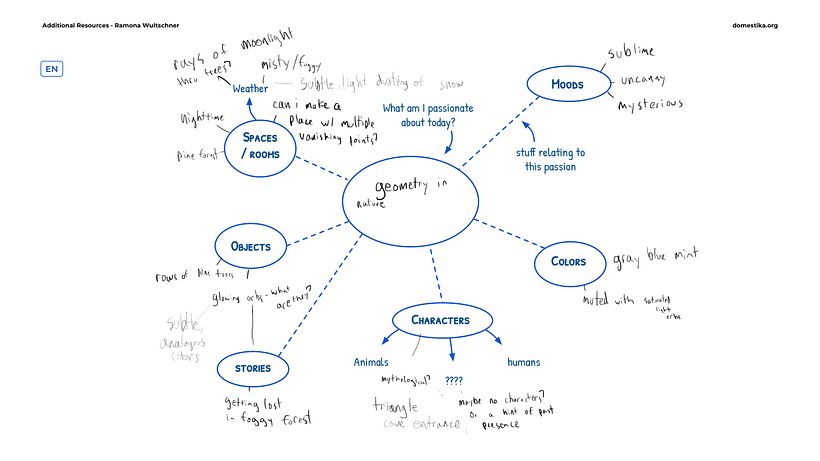 Additional Resources - Ramona Wultschner
domestika.org
EN
rays of moonlight
thru trees?
misty/foggy
Weather
subtle, light dusting of snow
nighttime
can i make a
place w/ multiple
vanishing points?
SPACES
/ ROOMS
pine forest
What am I passionate
about today?
MOODS
sublime
uncanny
mysterious
stuff relating to
this passion
geometry in
nature
OBJECTS
rows of pine trees
glowing orbs - what
are they?
subtle,
analogous
colors
STORIES
getting lost
in foggy forest
COLORS
gray blue mint
muted with saturated
light
orbs
CHARACTERS
Animals
????
humans
mythological?
triangle
cave entrance
maybe no characters?
Or a hint of past
presence